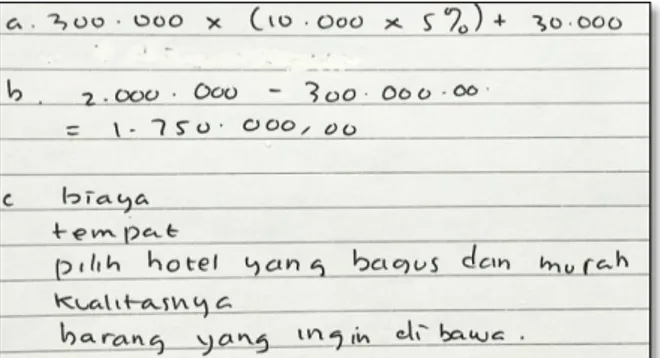 a. 300.000 x (10.000 x 5%) + 30.000
b. 2.000.000 - 300.000.00.
= 1.750.000,00
c biaya
tempat
pilih hotel yang bagus dan murah
kualitasnya
barang yang ingin di bawa.